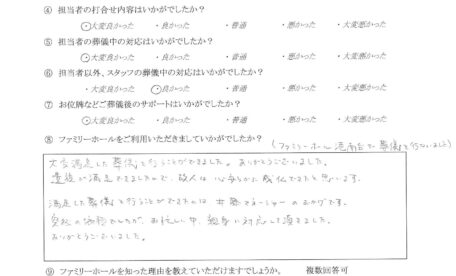 ④ 担当者の打合せ内容はいかがでしたか？
・大変良かった ・良かった ・普通 ・悪かった ・大変悪かった
⑤ 担当者の葬儀中の対応はいかがでしたか？
・大変良かった ・良かった ・普通 ・悪かった ・大変悪かった
⑥ 担当者以外、スタッフの葬儀中の対応はいかがでしたか？
・大変良かった ・良かった ・普通 ・悪かった ・大変悪かった
⑦ お位牌などご葬儀後のサポートはいかがでしたか？
・大変良かった ・良かった ・普通 ・悪かった ・大変悪かった
⑧ ファミリーホールをご利用いただきましていかがでしたか？
(ファミリーホール 港南台で葬儀を行いました)
大変満足した葬儀を行うことができました。ありがとうございました。
遺族が満足できましたので、故人は心安らかに成仏できたと思います。
満足した葬儀を行うことができたのは マネージャーのおかげです。
突然の 、お忙しい中、親身に対応して頂きました。
ありがとうございました。
⑨ ファミリーホールを知った理由を教えていただけますでしょうか。 複数回答可